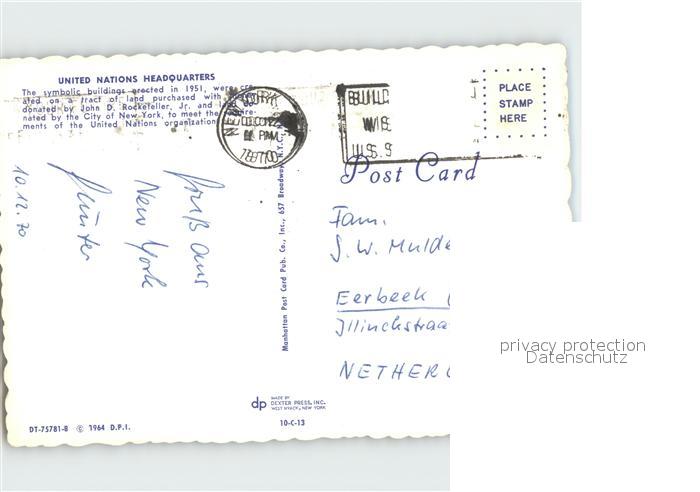 UNITED NATIONS HEADQUARTERS
The symbolic buildings erected in 1951, were cre-
ated on a tract of land purchased with
donated by John D. Rockefeller, Jr. and land do-
nated by the City of New York, to meet the require-
ments of the United Nations organization
PLACE
STAMP
HERE
NEW YORK
PM
1970
BUILD
WIS
U.S. S
Post Card
Gruß aus
New York
Günter
10.12.70
Manhattan Post Card Pub. Co., Inc., 657 Broadway, N.Y.C.
Fam.
J. W. Mulde
Eerbeek
Illinckstraa
NETHERL
privacy protection
Datenschutz
dp MADE BY
DEXTER PRESS, INC.
WEST NYACK, NEW YORK
DT-75781-B © 1964 D.P.I.
10-C-13